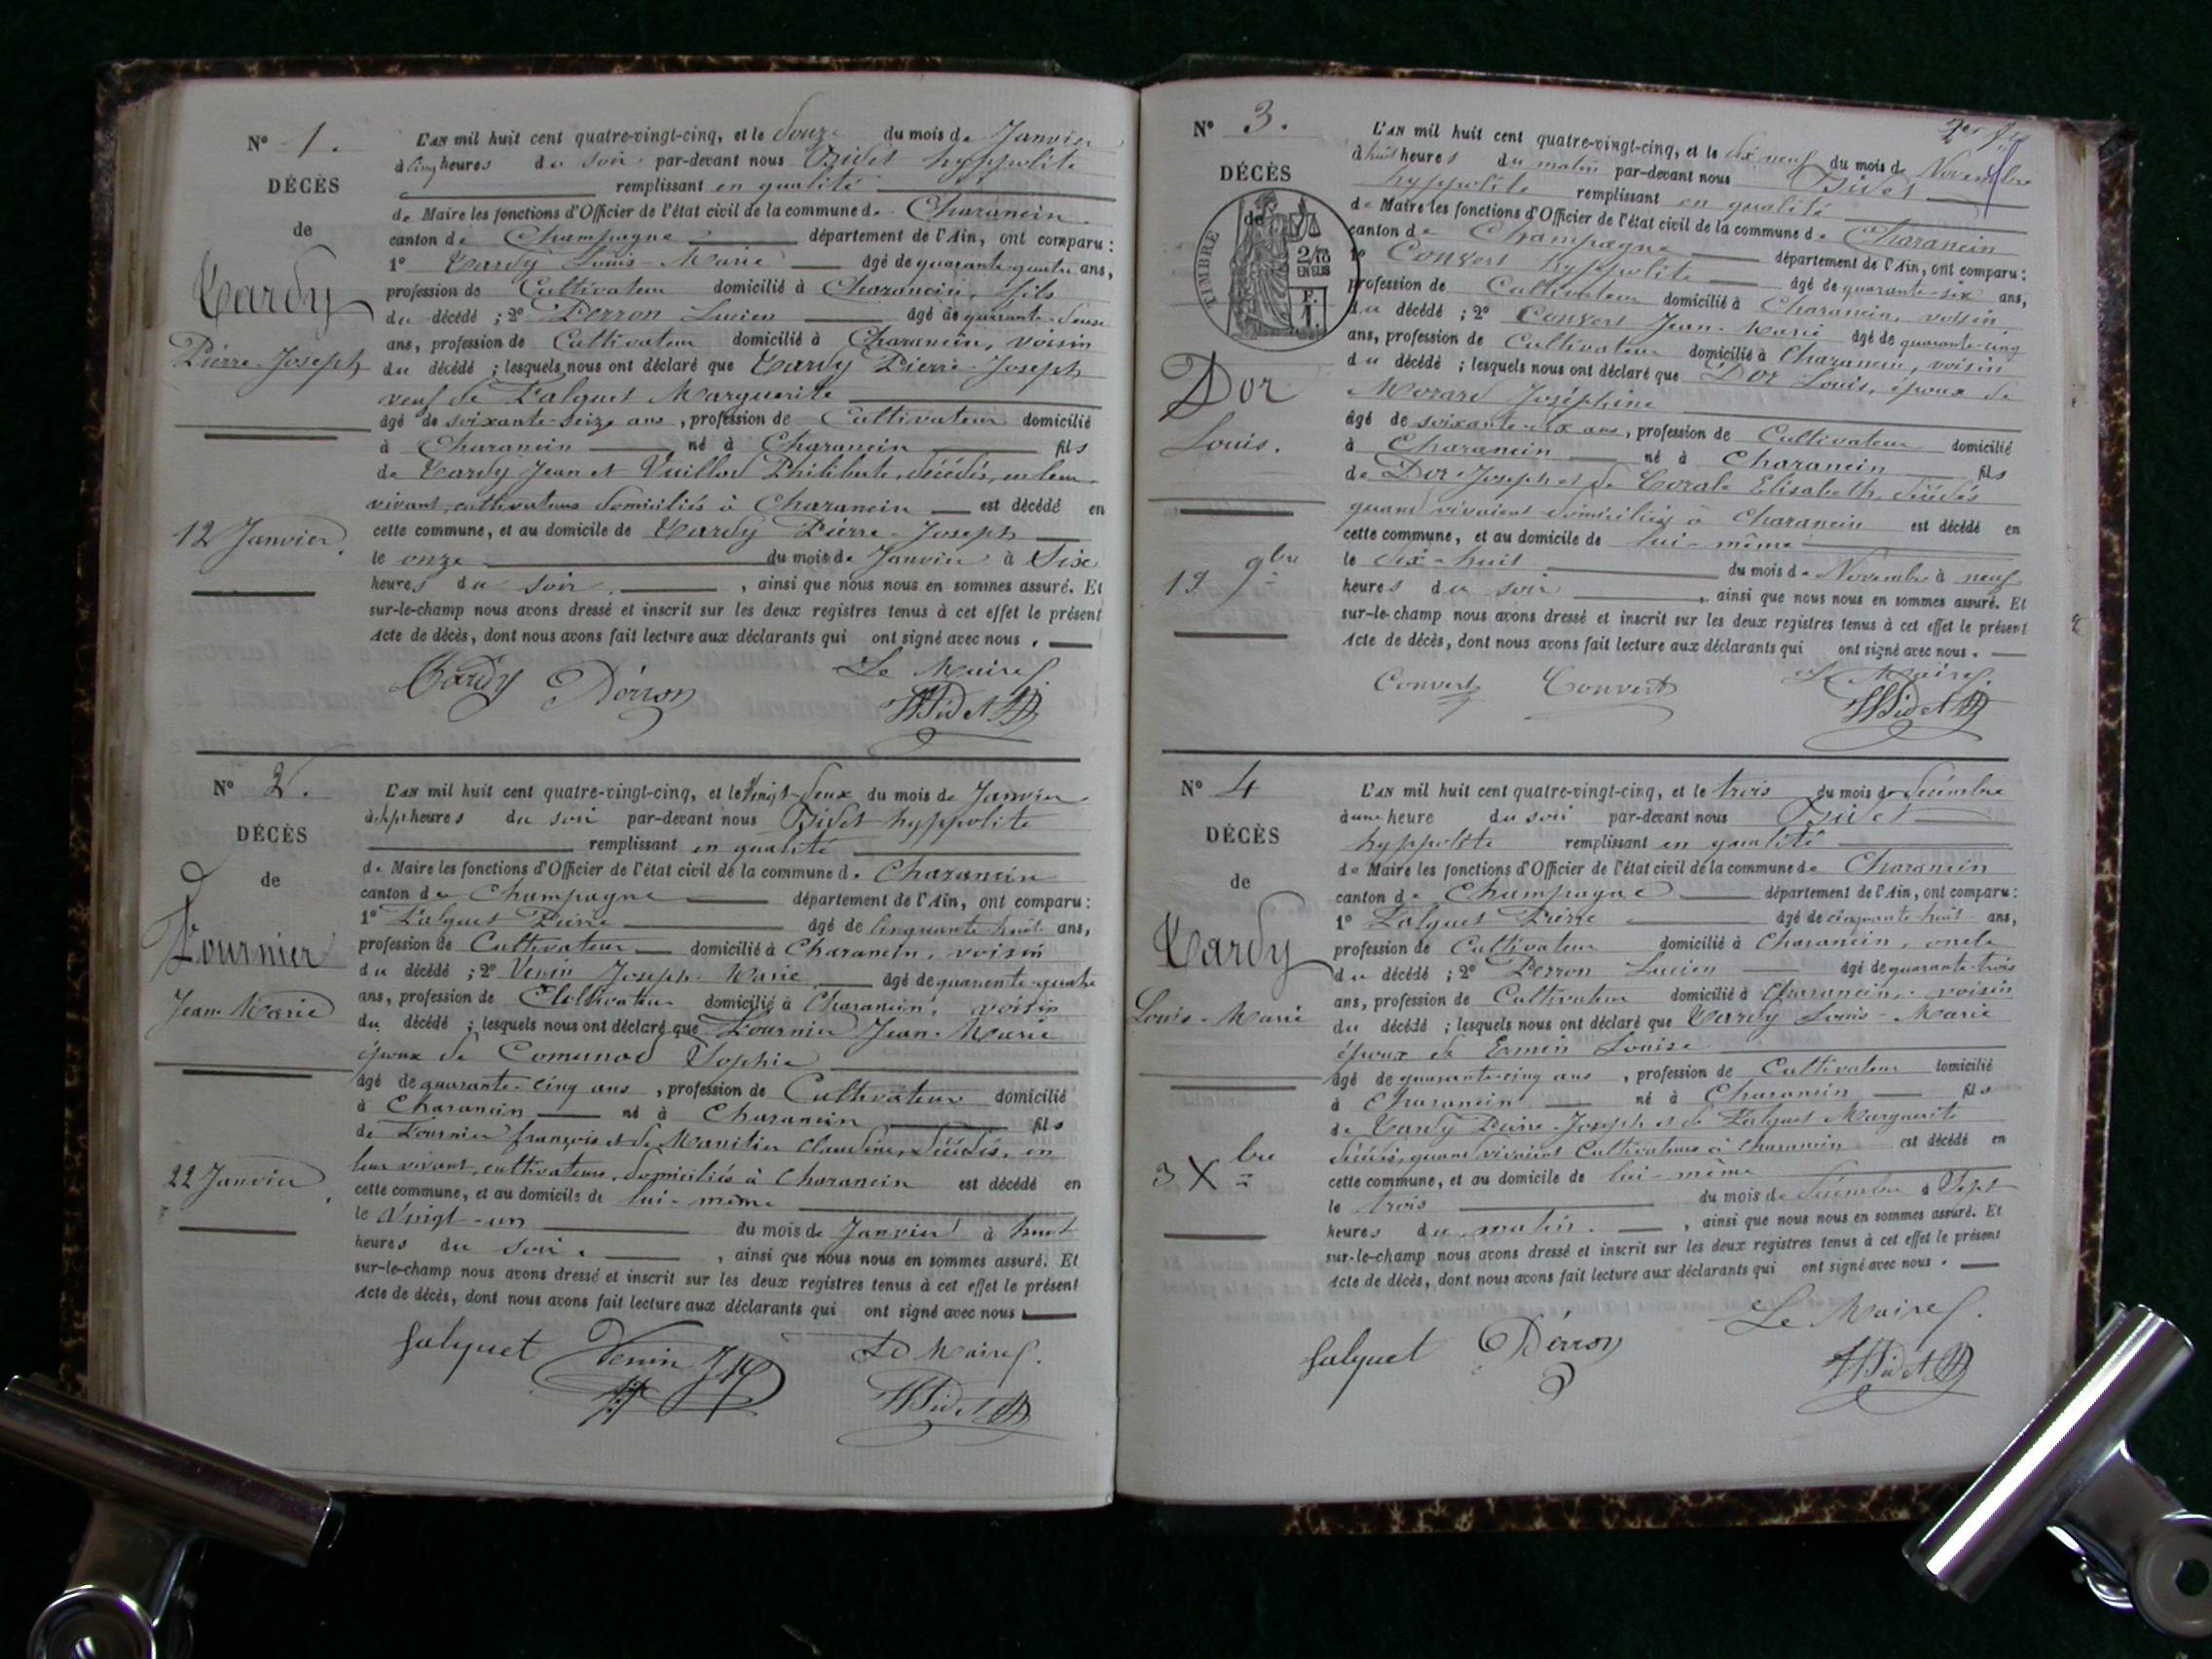 N° 1.
DÉCÈS
de
Tardy
Pierre-Joseph
12 Janvier
L'AN mil huit cent quatre-vingt-cinq, et le Douze du mois de Janvier
à cinq heures du soir par-devant nous Bidet hyppolite
remplissant en qualité
de Maire les fonctions d'Officier de l'état civil de la commune de Charancin
canton de Champagne département de l'Ain, ont comparu :
1° Tardy Louis-Marie âgé de quarante-quatre ans,
profession de Cultivateur domicilié à Charancin, fils
du décédé ; 2° Perron Lucien âgé de quarante-deux
ans, profession de Cultivateur domicilié à Charancin, voisin
du décédé ; lesquels nous ont déclaré que Tardy Pierre-Joseph
veuf de Falquet Marguerite
âgé de soixante-seize ans, profession de Cultivateur domicilié
à Charancin né à Charancin fils
de Tardy Jean et Vuillod Philiberte, décédés, en leur
vivant, cultivateurs domiciliés à Charancin est décédé en
cette commune, et au domicile de Tardy Pierre-Joseph
le onze du mois de Janvier à Six
heures du soir, ainsi que nous nous en sommes assuré. Et
sur-le-champ nous avons dressé et inscrit sur les deux registres tenus à cet effet le présent
Acte de décès, dont nous avons fait lecture aux déclarants qui ont signé avec nous.
Tardy Périon Le Maire
HBidet
N° 2.
DÉCÈS
de
Fournier
Jean-Marie
22 Janvier
L'AN mil huit cent quatre-vingt-cinq, et le Vingt-deux du mois de Janvier
à sept heures du soir par-devant nous Bidet hyppolite
remplissant en qualité
de Maire les fonctions d'Officier de l'état civil de la commune de Charancin
canton de Champagne département de l'Ain, ont comparu :
1° Falquet Pierre âgé de Cinquante huit ans,
profession de Cultivateur domicilié à Charancin, voisin
du décédé ; 2° Venin Joseph-Marie âgé de quarante-quatre
ans, profession de Cultivateur domicilié à Charancin, voisin
du décédé ; lesquels nous ont déclaré que Fournier Jean-Marie
époux de Comunod Sophie
âgé de quarante-cinq ans, profession de Cultivateur domicilié
à Charancin né à Charancin fils
de Fournier françois et de Manitier Claudine, décédés, en
leur vivant, cultivateurs, domiciliés à Charancin est décédé en
cette commune, et au domicile de lui-même
le Vingt-un du mois de Janvier à huit
heures du soir, ainsi que nous nous en sommes assuré. Et
sur-le-champ nous avons dressé et inscrit sur les deux registres tenus à cet effet le présent
Acte de décès, dont nous avons fait lecture aux déclarants qui ont signé avec nous
falquet Venin JM Le Maire
HBidet
N° 3.
DÉCÈS
de
TIMBRE
2/10
EN SUS
Dor
Louis.
19 9bre
L'AN mil huit cent quatre-vingt-cinq, et le dix neuf du mois de Novembre
à huit heures du matin par-devant nous Bidet
hyppolite remplissant en qualité
de Maire les fonctions d'Officier de l'état civil de la commune de Charancin
canton de Champagne département de l'Ain, ont comparu :
1° Convert hyppolite âgé de quarante-six ans,
profession de Cultivateur domicilié à Charancin, voisin
du décédé ; 2° Convert Jean-Marie âgé de quarante-cinq
ans, profession de Cultivateur domicilié à Charancin, voisin
du décédé ; lesquels nous ont déclaré que Dor Louis, époux de
Morard Joséphine
âgé de soixante-dix ans, profession de Cultivateur domicilié
à Charancin né à Charancin fils
de Dor Joseph et de Elisabeth, décédés
quand vivaient domiciliés à Charancin est décédé en
cette commune, et au domicile de lui-même
le dix-huit du mois de Novembre à neuf
heures du soir, ainsi que nous nous en sommes assuré. Et
sur-le-champ nous avons dressé et inscrit sur les deux registres tenus à cet effet le présent
Acte de décès, dont nous avons fait lecture aux déclarants qui ont signé avec nous.
Convert Convert Le Maire
HBidet
N° 4
DÉCÈS
de
Tardy
Louis-Marie
3 Xbre
L'AN mil huit cent quatre-vingt-cinq, et le trois du mois de Décembre
à une heure du soir par-devant nous Bidet
hyppolite remplissant en qualité
de Maire les fonctions d'Officier de l'état civil de la commune de Charancin
canton de Champagne département de l'Ain, ont comparu :
1° Falquet Pierre âgé de cinquante-huit ans,
profession de Cultivateur domicilié à Charancin, oncle
du décédé ; 2° Perron Lucien âgé de quarante-trois
ans, profession de Cultivateur domicilié à Charancin, voisin
du décédé ; lesquels nous ont déclaré que Tardy Louis-Marie
époux de Ermin Louise
âgé de quarante-cinq ans, profession de Cultivateur domicilié
à Charancin né à Charancin fils
de Tardy Pierre-Joseph et de Falquet Marguerite
décédés, quand vivaient Cultivateurs à Charancin est décédé en
cette commune, et au domicile de lui-même
le trois du mois de Décembre à Sept
heures du matin, ainsi que nous nous en sommes assuré. Et
sur-le-champ nous avons dressé et inscrit sur les deux registres tenus à cet effet le présent
Acte de décès, dont nous avons fait lecture aux déclarants qui ont signé avec nous.
falquet Périon Le Maire
HBidet